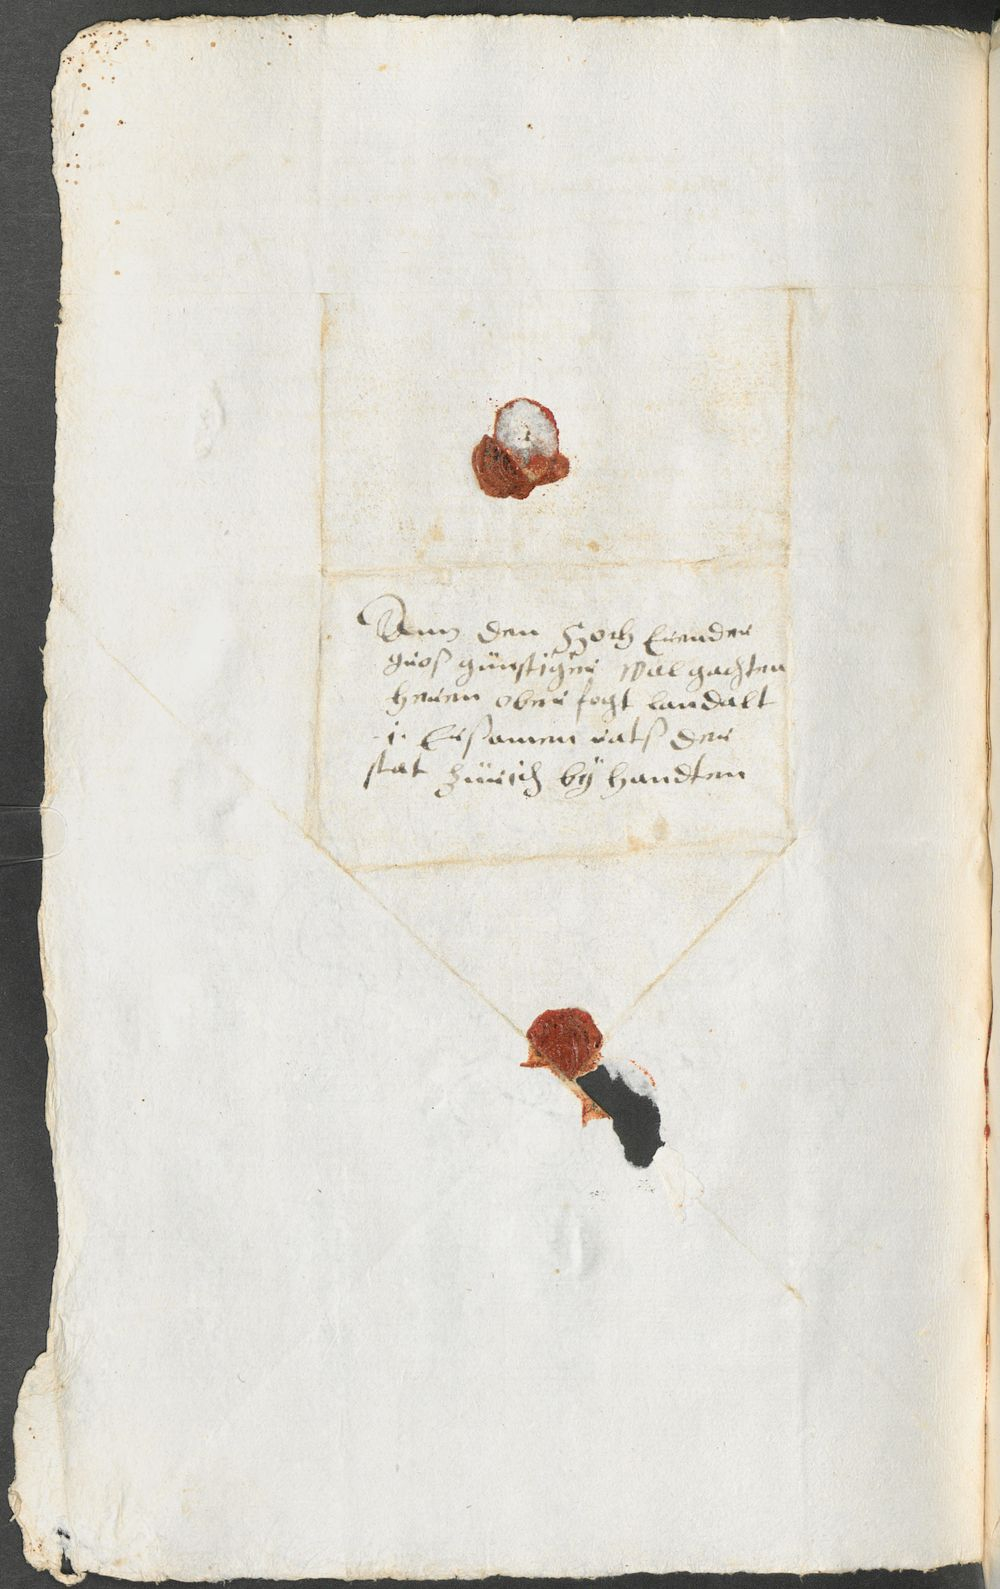 Ann den Hoch Erender
gros günstiger wal gachten
heren ober fogt landalt
i Ersamen rats der
stat zürich bÿ handten